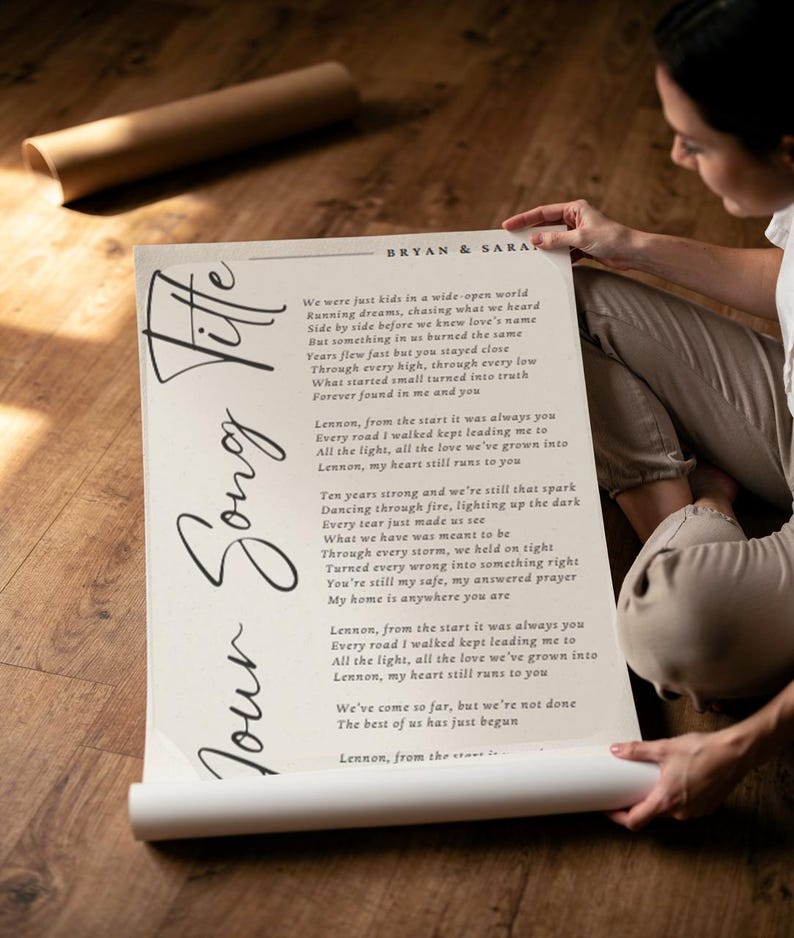 BRYAN & SARA
Your Song Title
We were just kids in a wide-open world
Running dreams, chasing what we heard
Side by side before we knew love's name
But something in us burned the same
Years flew fast but you stayed close
Through every high, through every low
What started small turned into truth
Forever found in me and you
Lennon, from the start it was always you
Every road I walked kept leading me to
All the light, all the love we've grown into
Lennon, my heart still runs to you
Ten years strong and we're still that spark
Dancing through fire, lighting up the dark
Every tear just made us see
What we have was meant to be
Through every storm, we held on tight
Turned every wrong into something right
You're still my safe, my answered prayer
My home is anywhere you are
Lennon, from the start it was always you
Every road I walked kept leading me to
All the light, all the love we've grown into
Lennon, my heart still runs to you
We've come so far, but we're not done
The best of us has just begun
Lennon, from the start it